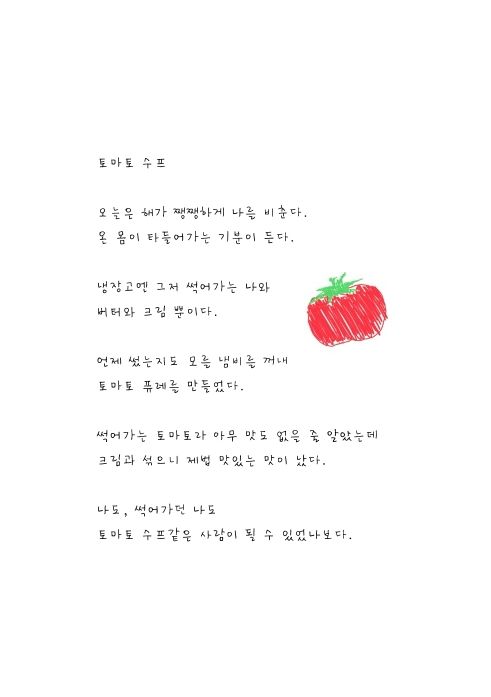 토마토 수프
오늘은 해가 쨍쨍하게 나를 비춘다.
온 몸이 타들어가는 기분이 든다.
냉장고엔 그저 썩어가는 나와
버터와 크림 뿐이다.
언제 썼는지도 모를 냄비를 꺼내
토마토 퓨레를 만들었다.
썩어가는 토마토라 아무 맛도 없을 줄 알았는데
크림과 섞으니 제법 맛있는 맛이 났다.
나도, 썩어가던 나도
토마토 수프같은 사람이 될 수 있었나보다.